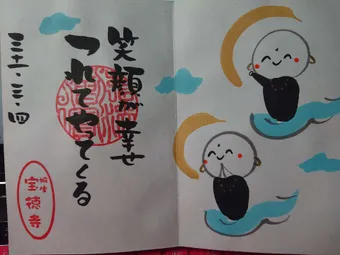 笑顔が幸せ
つれてやってくる
三十一・三・四
宝徳寺